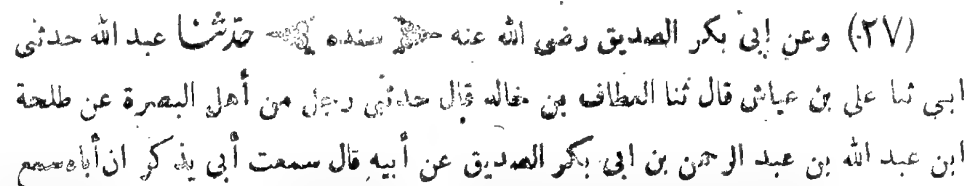 (٢٧) وعن إبى بكر الصديق رضى الله عنه ﴿ سنده ﴾ حدّثنا عبد الله حدثنى
ابى ثنا على بن عياش قال ثنا العطاف بن خالد قال حدثنى رجل من أهل البصرة عن طلحة
ابن عبد الله بن عبد الرحمن بن ابى بكر الصديق عن أبيه قال سمعت أبى يذكر ان أباه سمع